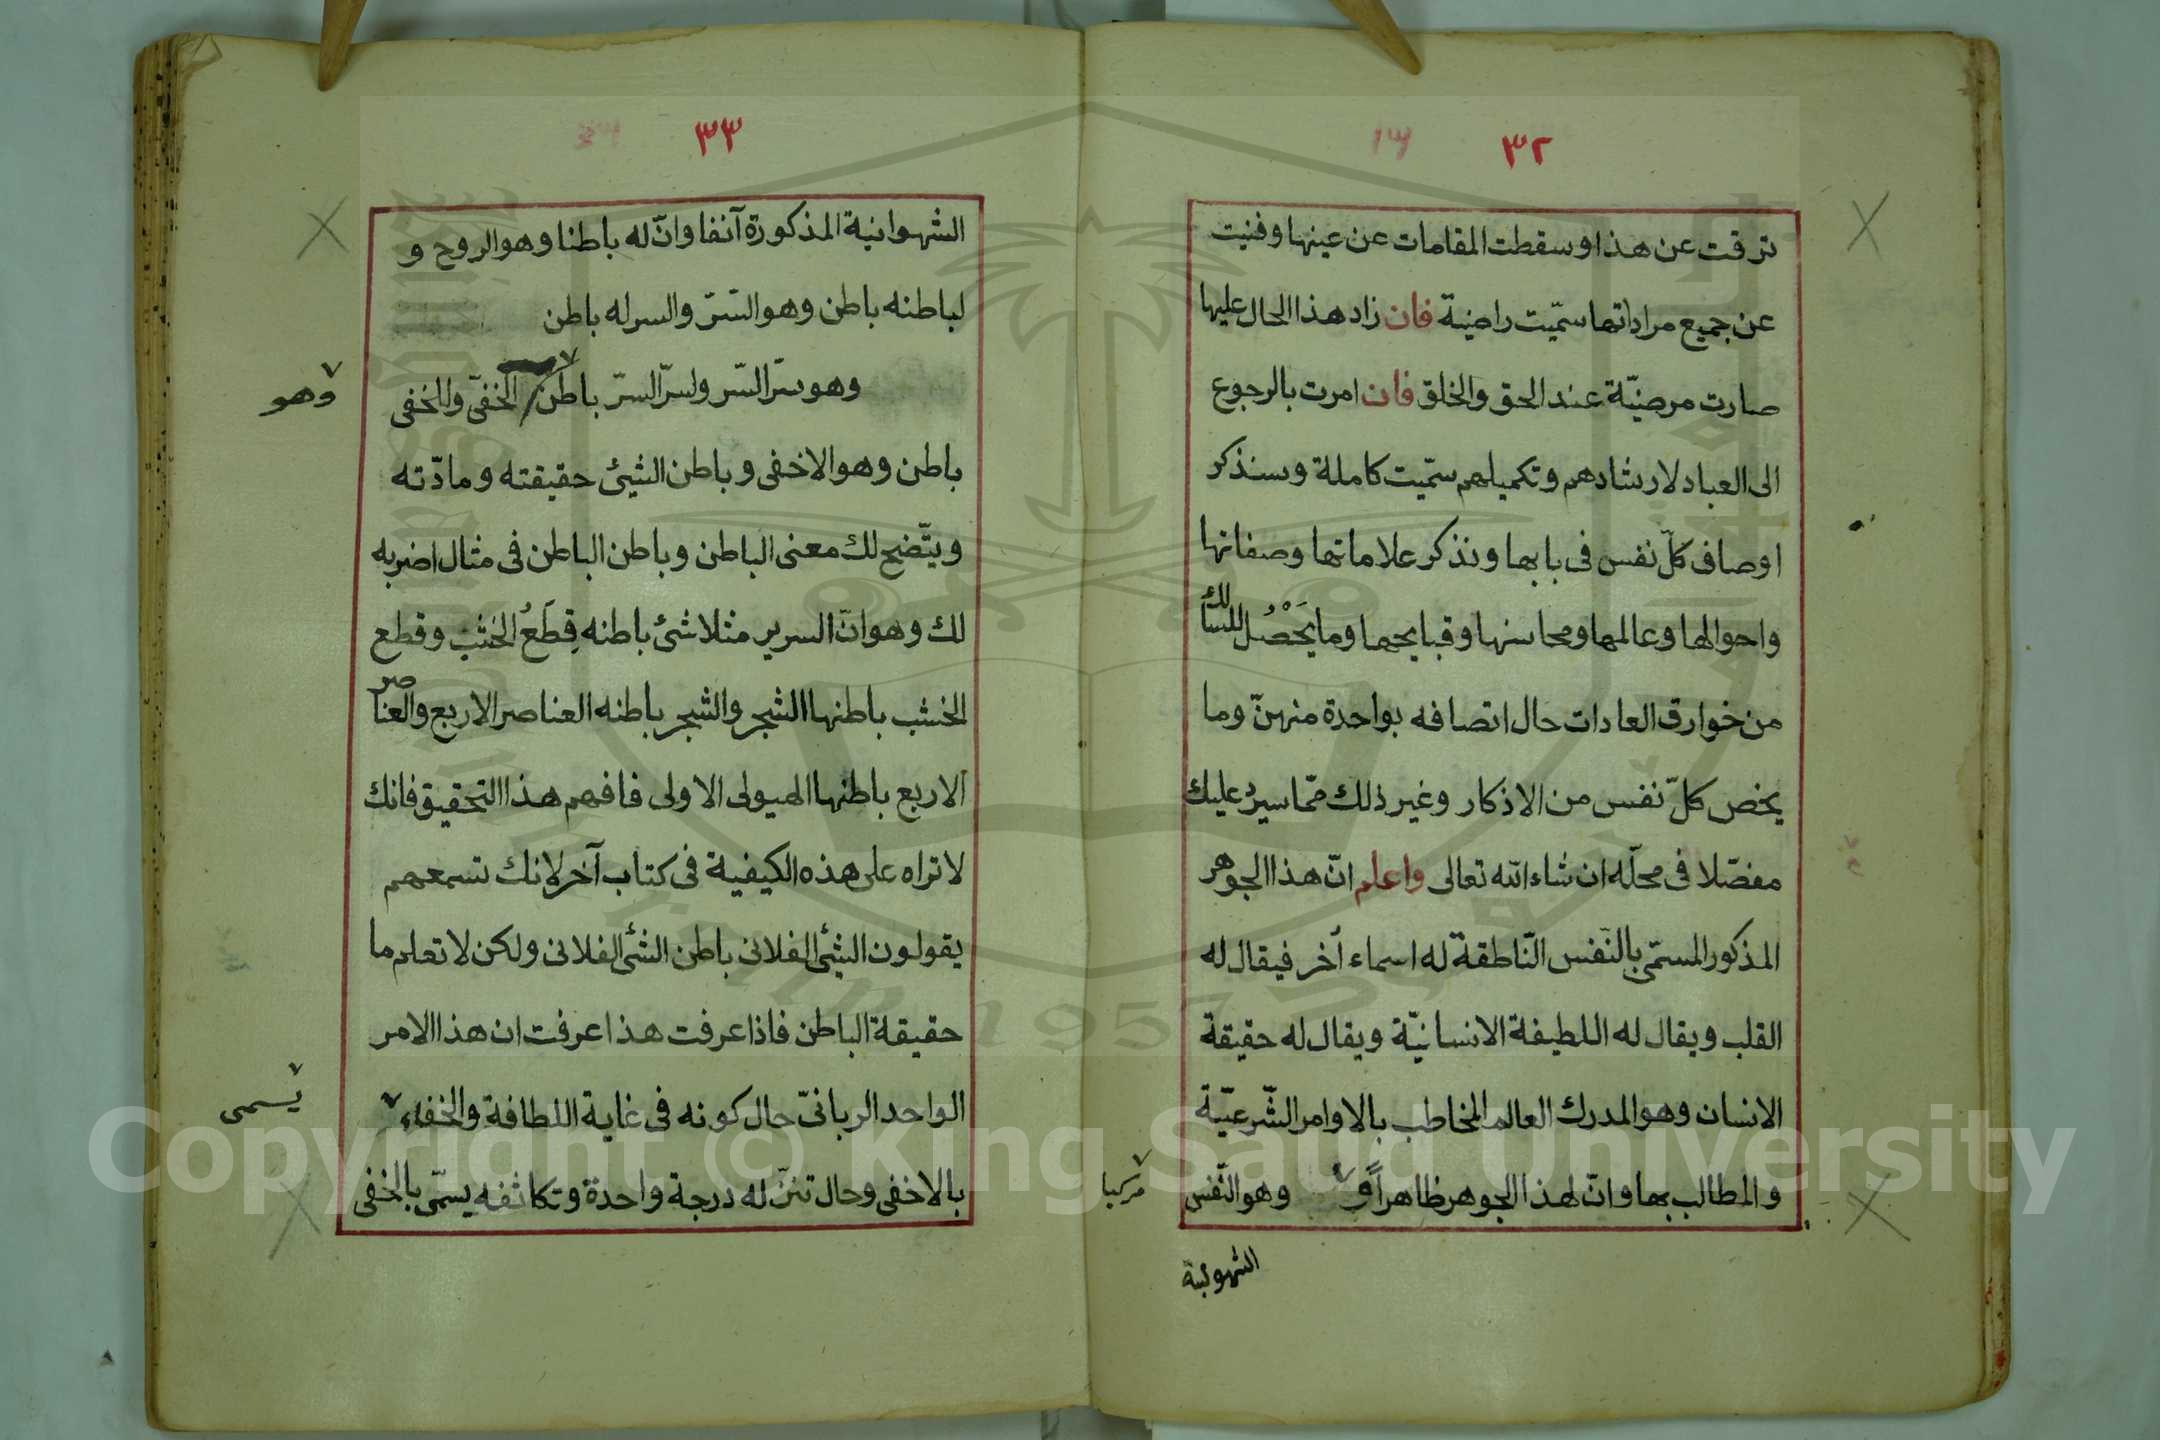 ٣٢
ترقت عن هذا وسقطت المقامات عن عينها وفنيت
عن جميع مراداتها سمّيت راضية فان زاد هذا الحال عليها
صارت مرضيّة عند الحق والخلق فان امرت بالرجوع
الى العباد لارشادهم وتكميلهم سمّيت كاملة وسنذكر
اوصاف كلّ نفس فى بابها ونذكر علاماتها وصفاتها
واحوالها وعالمها ومحاسنها وقبايحها وما يَحْصُل للسّالك
من خوارق العادات حال اتصافه بواحدة منهنّ وما
يخص كلّ نفس من الاذكار وغير ذلك ممّا سيرد عليك
مفصّلا فى محلّه ان شاء الله تعالى واعلم انّ هذا الجوهر
المذكور المسمّى بالنّفس النّاطقة له اسماء آخر فيقال له
القلب ويقال له اللطيفة الانسانيّة ويقال له حقيقة
الانسان وهو المدرك العالم المخاطب بالاوامر الشّرعيّة
والمطالب بها وانّ لهذا الجوهر ظاهراً و وهو النّفس
مركبا
الشهوانية
٣٣
الشهوانية المذكورة آنفا وانّ له باطنا وهو الروح و
لباطنه باطن وهو السّرّ والسر له باطن
وهو سرّ السّر ولسرّ السرّ باطن الخفىّ وللخفى
وهو
باطن وهو الاخفى وباطن الشيئ حقيقته ومادّته
ويتّضح لك معنى الباطن وباطن الباطن فى مثال اضربه
لك وهو انّ السرير مثلا شئ باطنه قِطَعُ الخشب وقطع
الخشب باطنها الشجر والشجر باطنه العناصر الاربع والعناصر
الاربع باطنها الهيولى الاولى فافهم هذا التحقيق فانك
لا تراه على هذه الكيفية فى كتاب آخر لانك تسمعهم
يقولون الشيئ الفلانى باطن الشئ الفلانى ولكن لا تعلم ما
حقيقة الباطن فاذا عرفت هذا عرفت ان هذا الامر
الواحد الربانىّ حال كونه فى غاية اللطافة والخفاء
يسمى
بالاخفى وحال تنزّله درجة واحدة وتكاثفه يسمّى بالخفى
Copyright © King Saud University